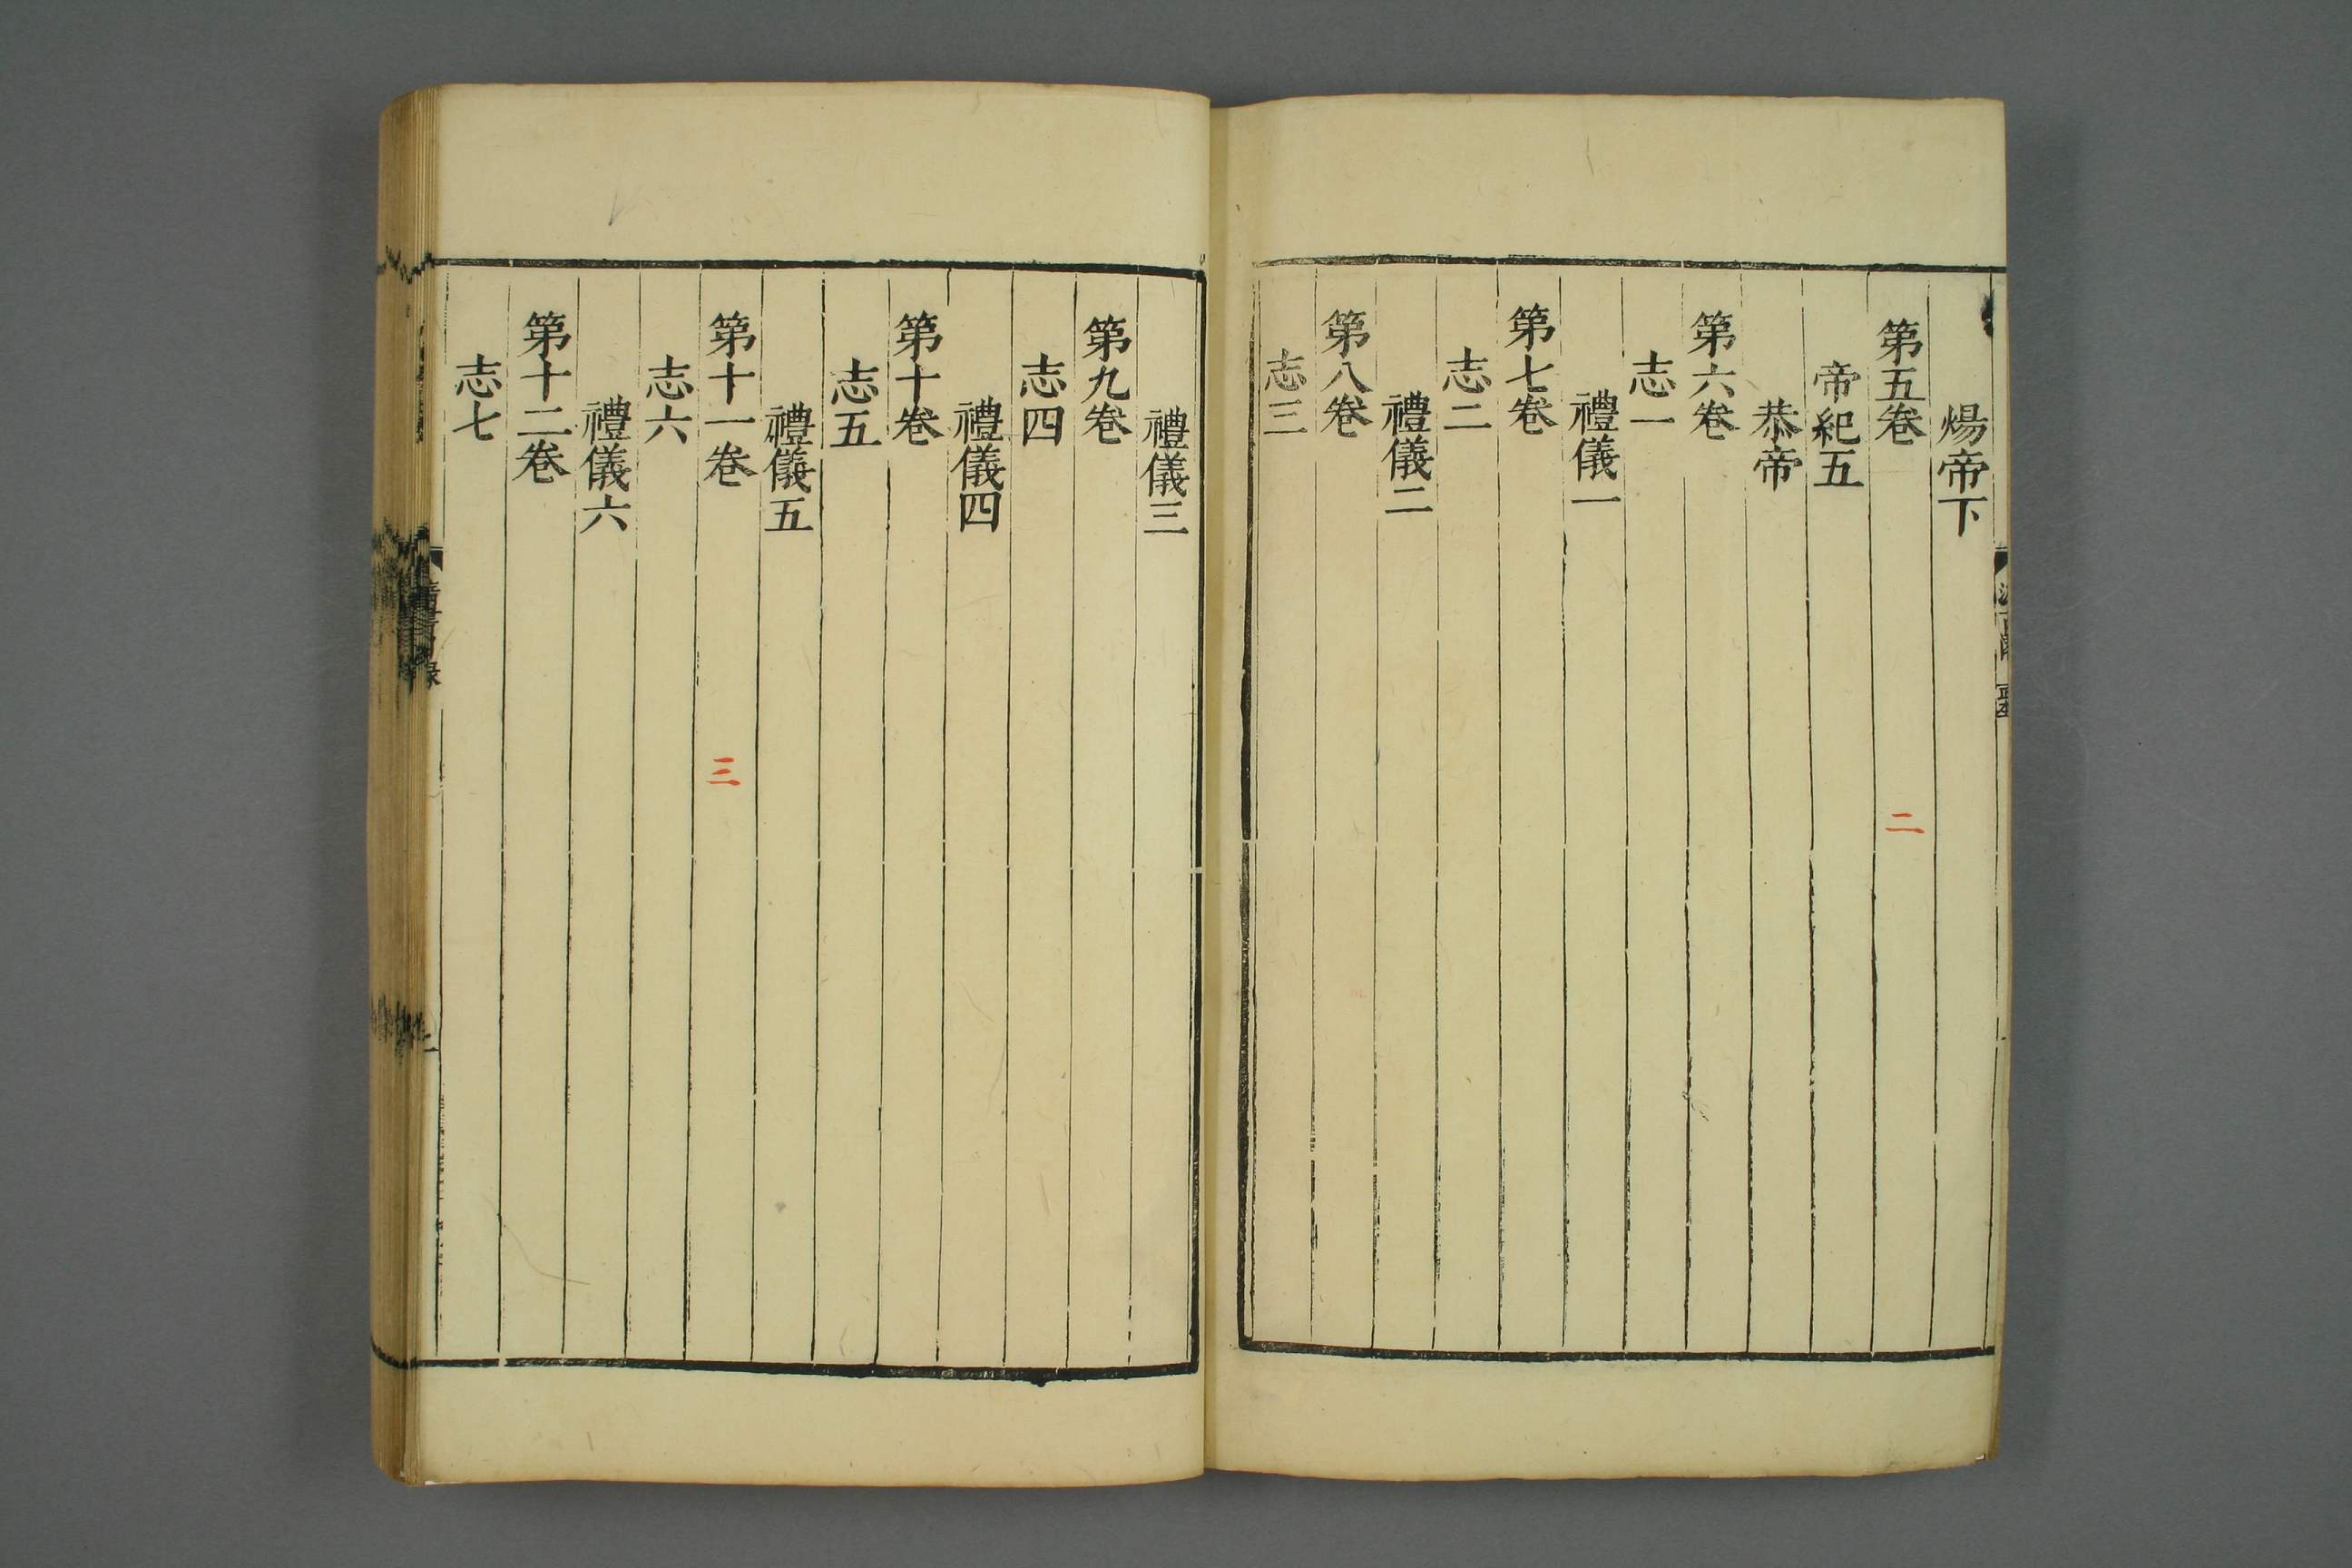 煬帝下
第五卷
二
帝紀五
恭帝
第六卷
志一
禮儀一
第七卷
志二
禮儀二
第八卷
志三
禮儀三
第九卷
志四
禮儀四
第十卷
志五
禮儀五
第十一卷
三
志六
禮儀六
第十二卷
志七